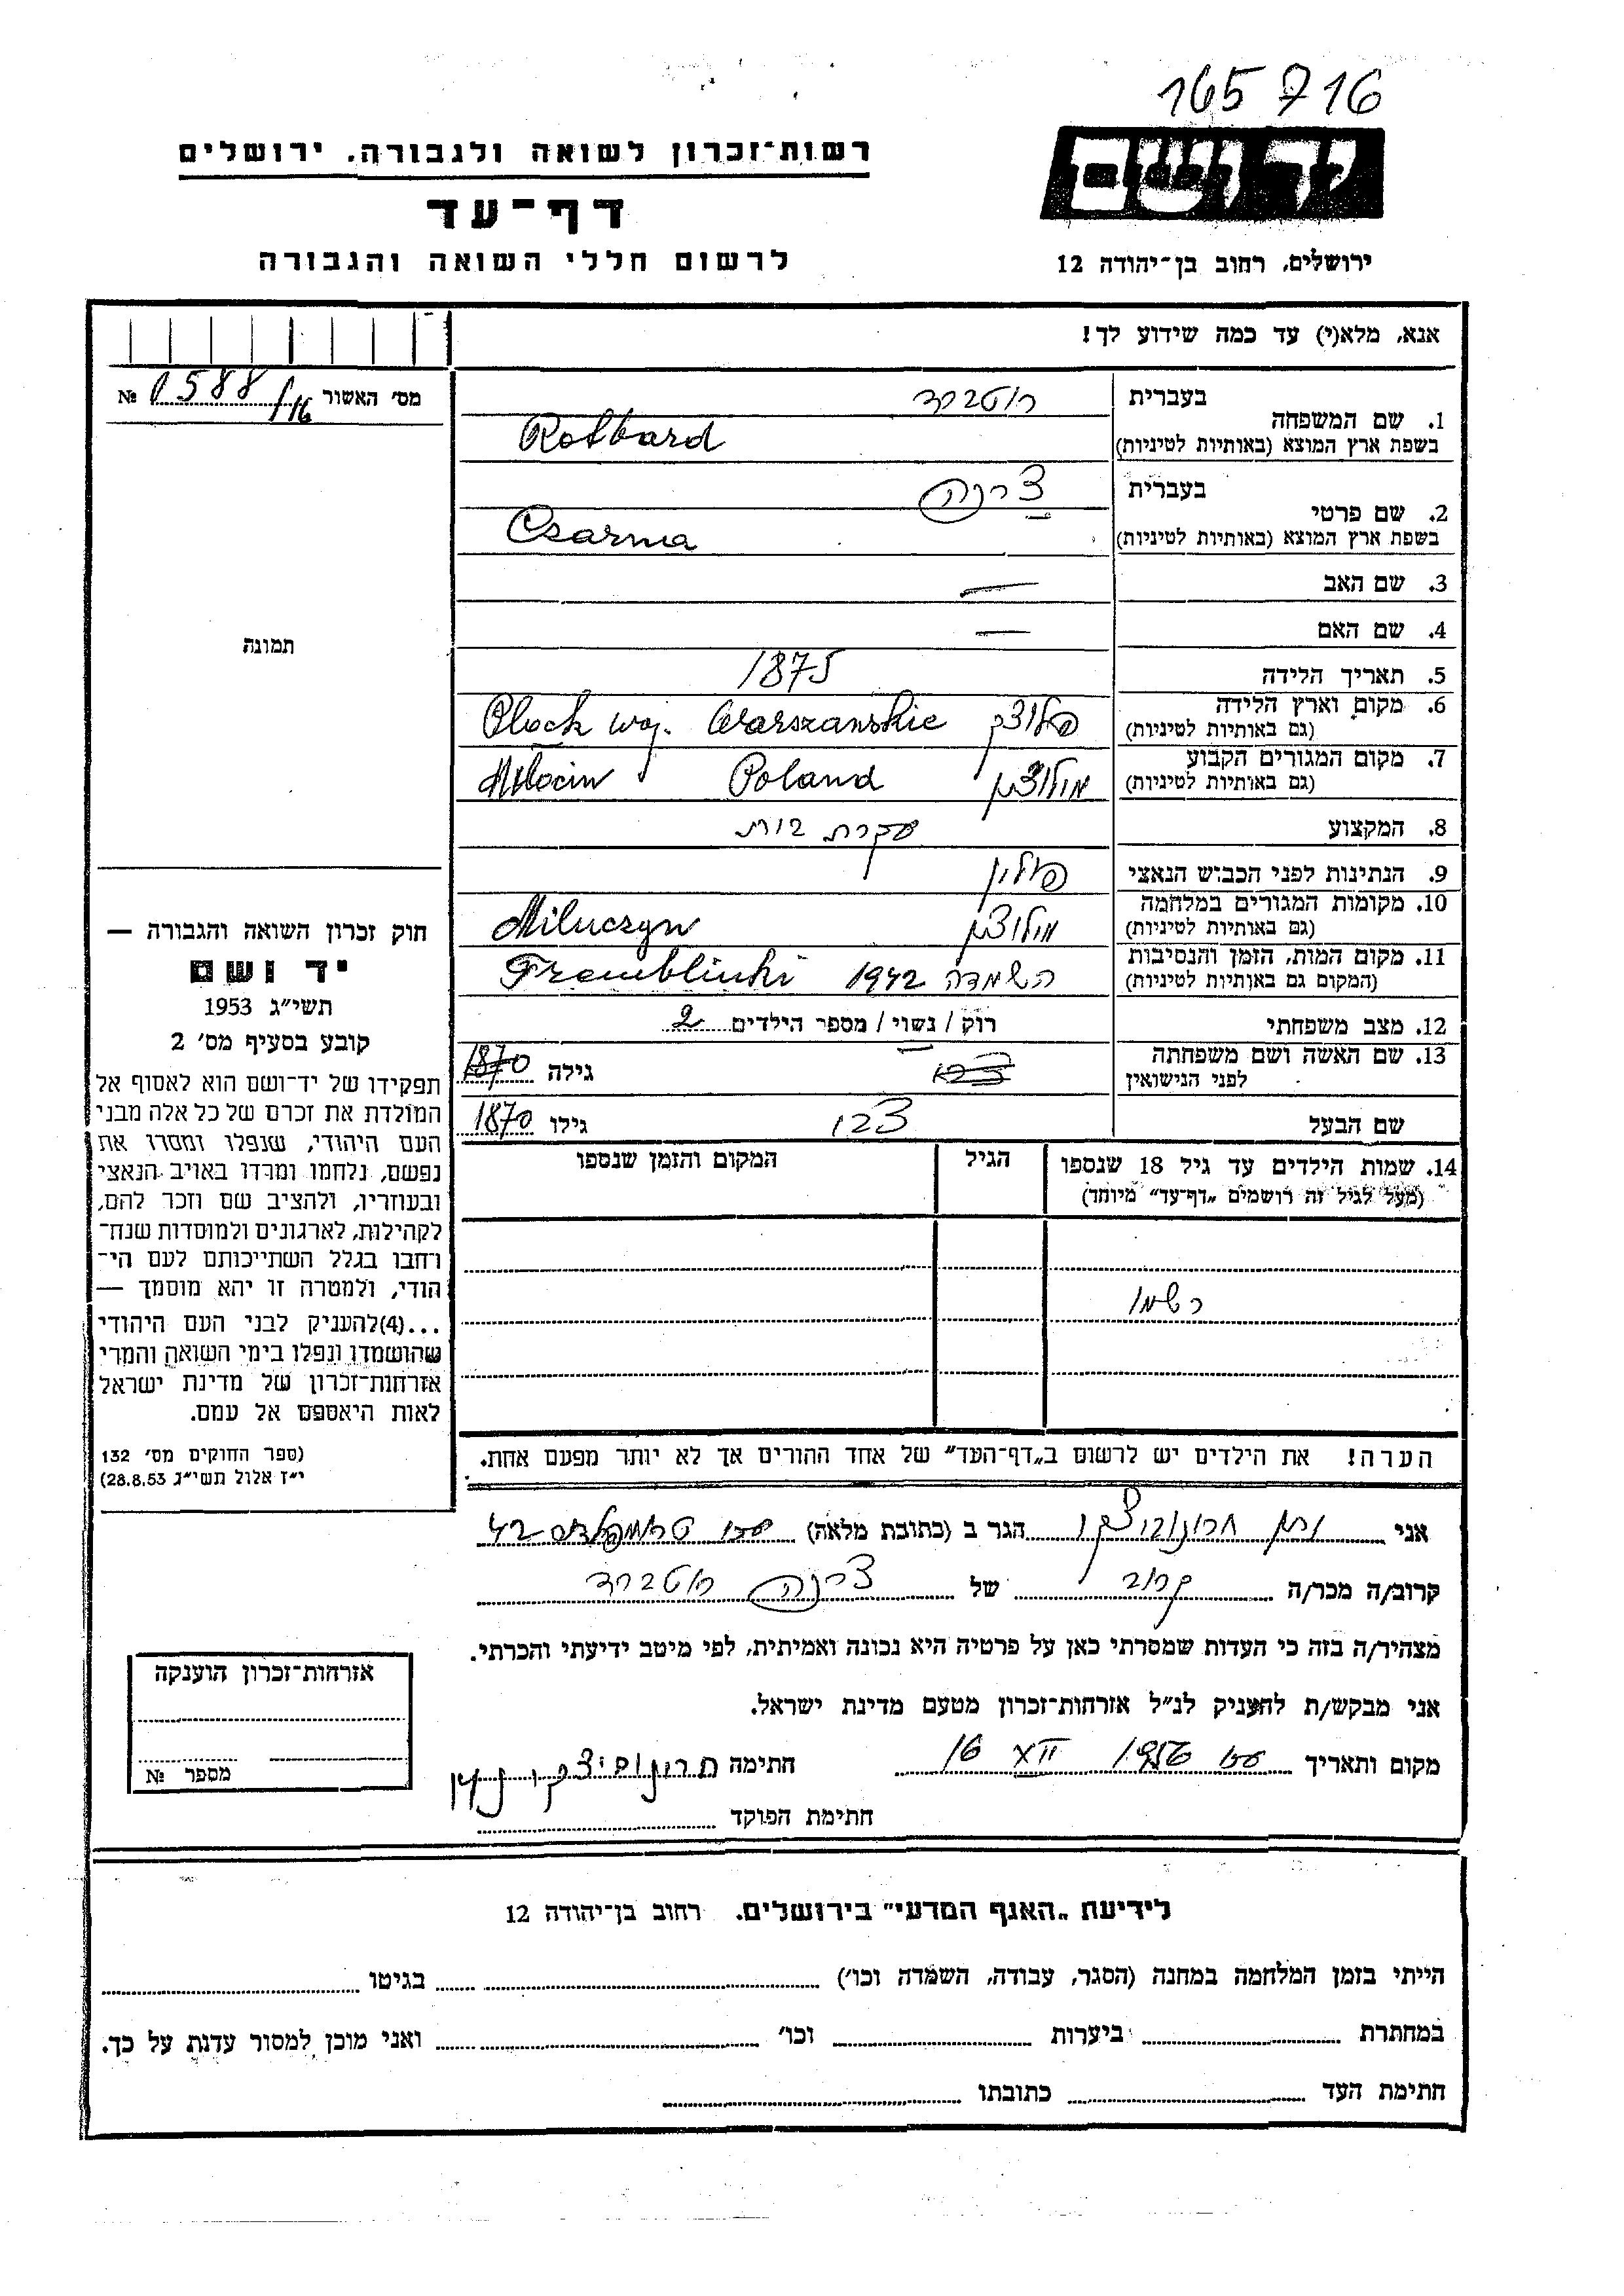 165716
יד ושם
רשות־זכרון לשואה ולגבורה, ירושלים
דף־עד
לרשום חללי השואה והגבורה
ירושלים, רחוב בן־יהודה 12
אנא, מלא(י) עד כמה שידוע לך!
מס' האשור № 0588/16
תמונה
1. שם המשפחה
בעברית רוטברד
בשפת ארץ המוצא (באותיות לטיניות) Rotbard
2. שם פרטי
בעברית צרנה
בשפת ארץ המוצא (באותיות לטיניות) Czarna
3. שם האב —
4. שם האם —
5. תאריך הלידה 1875
6. מקום וארץ הלידה
(גם באותיות לטיניות) פלוצק Plock woj. Warszawskie
7. מקום המגורים הקבוע
(גם באותיות לטיניות) מולוצין Poland
8. המקצוע עקרת בית
9. הנתינות לפני הכבוש הנאצי פולין
10. מקומות המגורים במלחמה
(גם באותיות לטיניות) מולוצין Miluczyn
11. מקום המות, הזמן והנסיבות
(המקום גם באותיות לטיניות) השמדה 1942 Tremblinki
12. מצב משפחתי רוק / נשוי / מספר הילדים 2
13. שם האשה ושם משפחתה
לפני הנישואין גילה 1870
שם הבעל גילו 1870
14. שמות הילדים עד גיל 18 שנספו
(מעל לגיל זה רושמים „דף־עד" מיוחד)
הגיל
המקום והזמן שנספו
רשמו
הערה! את הילדים יש לרשום ב„דף־העד" של אחד ההורים אך לא יותר מפעם אחת.
חוק זכרון השואה והגבורה —
יד ושם
תשי״ג 1953
קובע בסעיף מס' 2
תפקידו של יד־ושם הוא לאסוף אל
המולדת את זכרם של כל אלה מבני
העם היהודי, שנפלו ומסרו את
נפשם, נלחמו ומרדו באויב הנאצי
ובעוזריו, ולהציב שם וזכר להם,
לקהילות, לארגונים ולמוסדות שנח־
רחבו בגלל השתייכותם לעם הי־
הודי, ולמטרה זו יהא מוסמך —
...(4)להעניק לבני העם היהודי
שהושמדו ונפלו בימי השואה והמרי
אזרחות־זכרון של מדינת ישראל
לאות היאספם אל עמם.
(ספר החוקים מס' 132
י״ז אלול תשי״ג 28.8.53)
אני הגר ב (כתובת מלאה) 42
קרוב/ה מכר/ה קרוב של צרנה רוטברד
מצהיר/ה בזה כי העדות שמסרתי כאן על פרטיה היא נכונה ואמיתית, לפי מיטב ידיעתי והכרתי.
אני מבקש/ת להעניק לנ״ל אזרחות־זכרון מטעם מדינת ישראל.
מקום ותאריך 16 XII 1956 חתימה
חתימת הפוקד
אזרחות־זכרון הוענקה
מספר №
לידיעת „האגף המדעי" בירושלים, רחוב בן־יהודה 12
הייתי בזמן המלחמה במחנה (הסגר, עבודה, השמדה וכו') בגיטו
במחתרת ביערות וכו' ואני מוכן למסור עדות על כך.
חתימת העד כתובתו